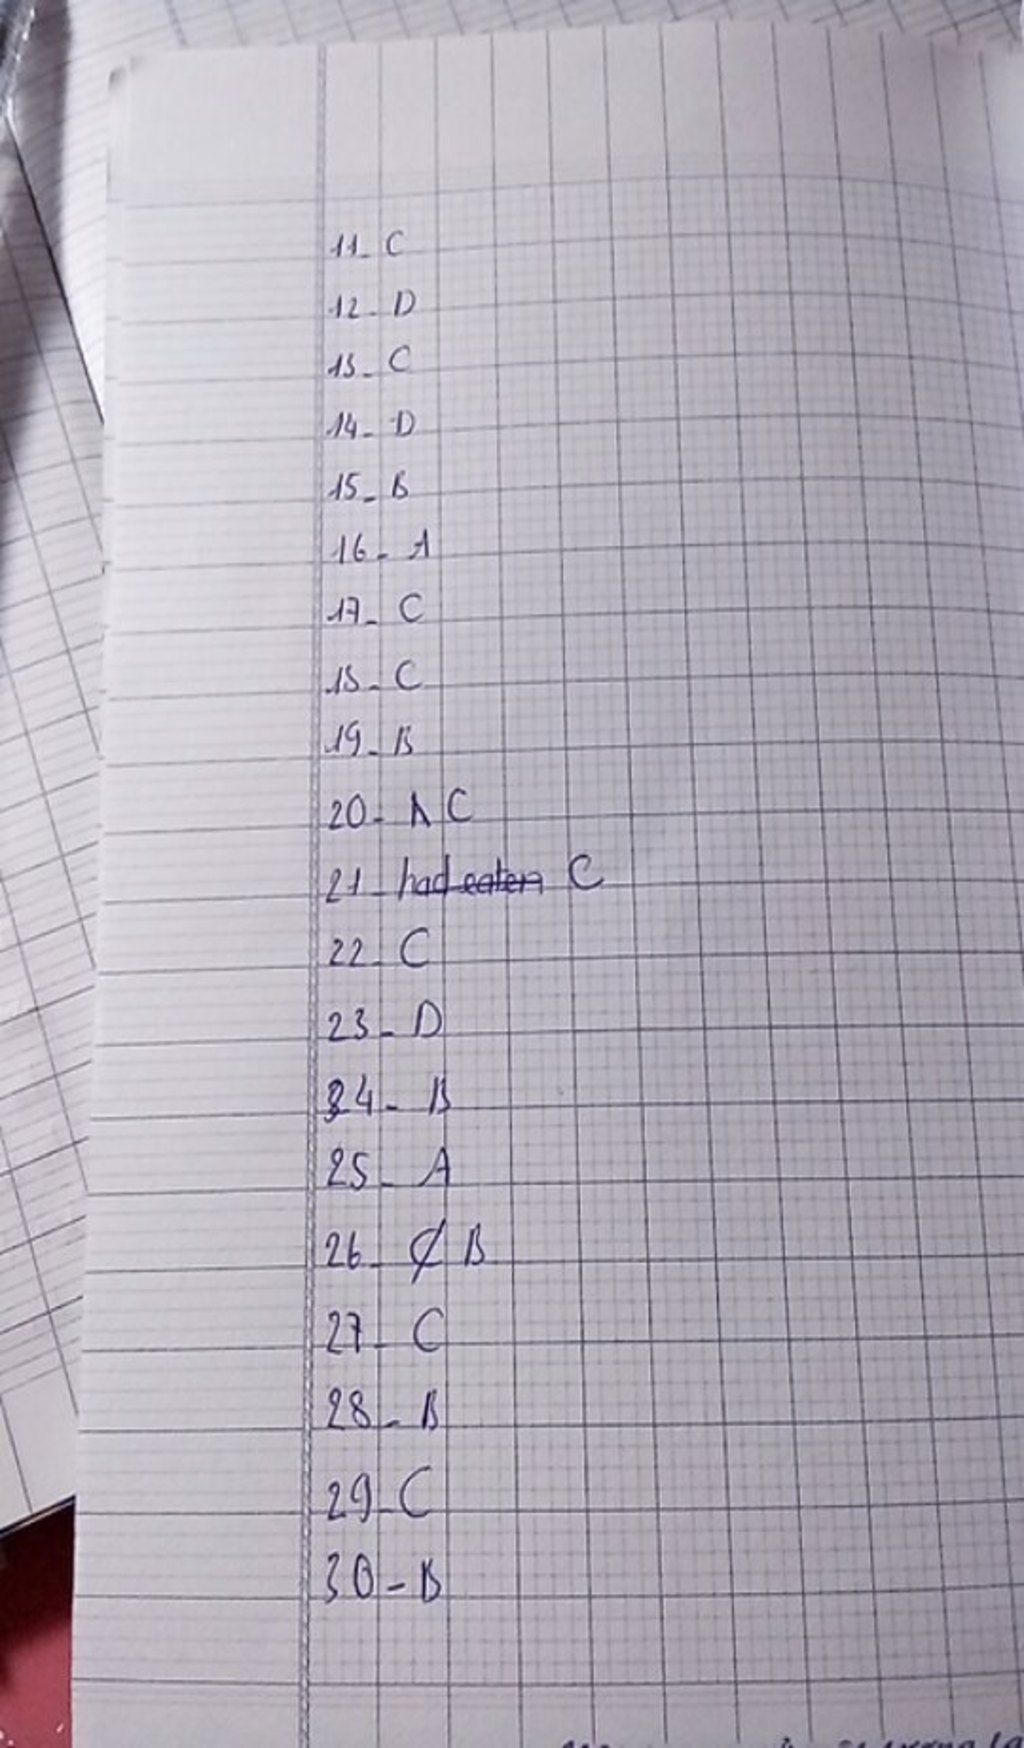 11_ C
12_ D
13_ C
14_ D
15_ B
16_ A
17_ C
18_ C
19_ B
20_ A C
21_ had eaten C
22_ C
23_ D
24_ B
25_ A
26_ C B
27_ C
28_ B
29_ C
30_ B